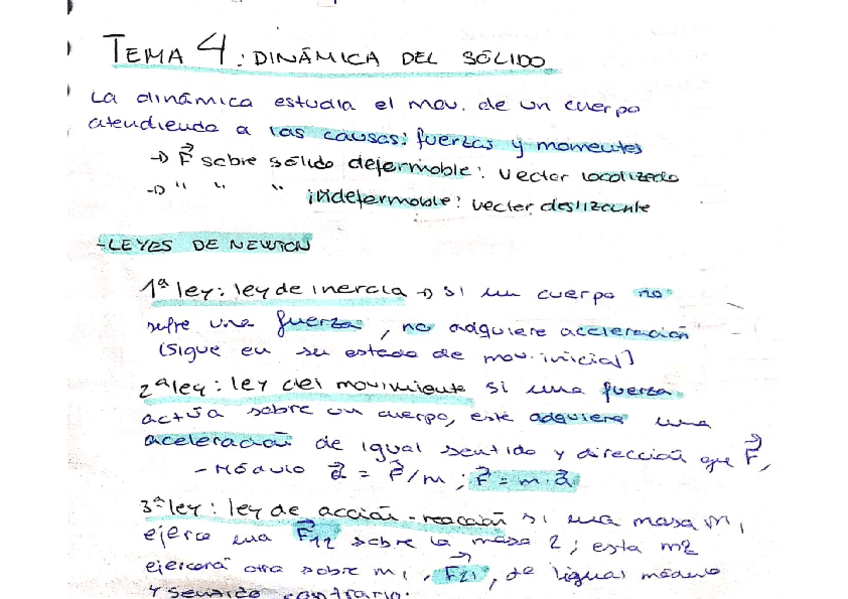 TEMA 4: DINÁMICA DEL SÓLIDO
La dinámica estudia el mov. de un cuerpo
atendiendo a las causas: fuerzas y momentos
→ F⃗ sobre sólido deformable: vector localizado
→ " " " indeformable: vector deslizante
-LEYES DE NEWTON
1ª ley: ley de inercia → si un cuerpo no
sufre una fuerza, no adquiere aceleración
(sigue en su estado de mov. inicial)
2ª ley: ley del movimiento si una fuerza
actúa sobre un cuerpo, este adquiere una
aceleración de igual sentido y dirección que F⃗,
- Módulo a⃗ = F⃗/m ; F⃗ = m·a⃗
3ª ley: ley de acción-reacción si una masa m1
ejerce una F⃗12 sobre la masa 2; esta m2
ejercerá otra sobre m1, F⃗21, de igual módulo
y sentido contrario: